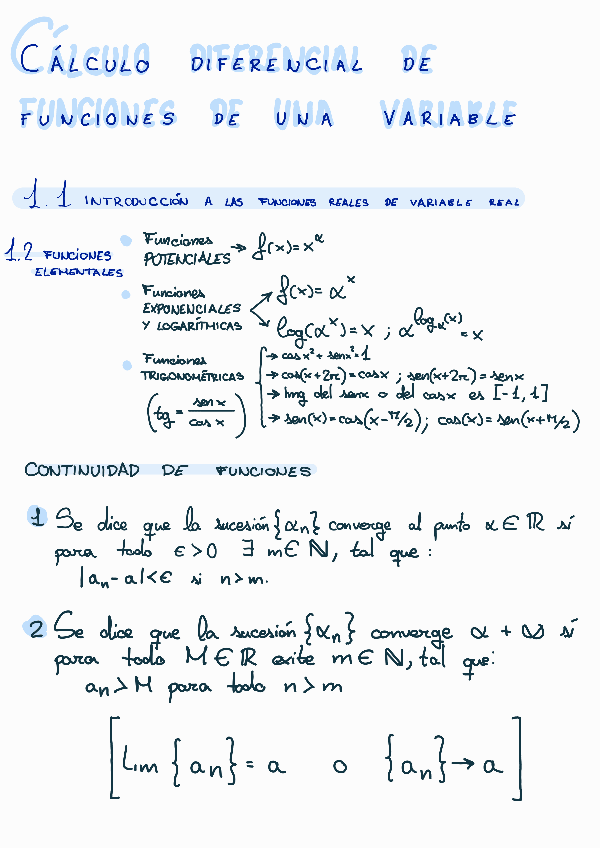 CÁLCULO DIFERENCIAL DE
FUNCIONES DE UNA VARIABLE
1.1 INTRODUCCIÓN A LAS FUNCIONES REALES DE VARIABLE REAL
1.2 FUNCIONES
ELEMENTALES
Funciones
POTENCIALES → f(x)=x^α
Funciones
EXPONENCIALES
Y LOGARÍTMICAS
f(x)= α^x
log(α^x)=x ; α^log_α(x) = x
Funciones
TRIGONOMÉTRICAS
(tg = sen x / cos x)
→ cos x²+ sen x²=1
→ cos(x+2π)=cos x ; sen(x+2π)=sen x
→ Img del senx o del cosx es [-1, 1]
→ sen(x)=cos(x-π/2); cos(x)=sen(x+π/2)
CONTINUIDAD DE FUNCIONES
1 Se dice que la sucesión {αn} converge al punto α∈ℝ sí
para todo ε>0 ∃ m∈ℕ, tal que :
|an-a|<ε si n>m.
2 Se dice que la sucesión {αn} converge α +∞ sí
para todo M∈ℝ exite m∈ℕ, tal que:
an>M para todo n>m
[Lim {an}= a o {an}→a]